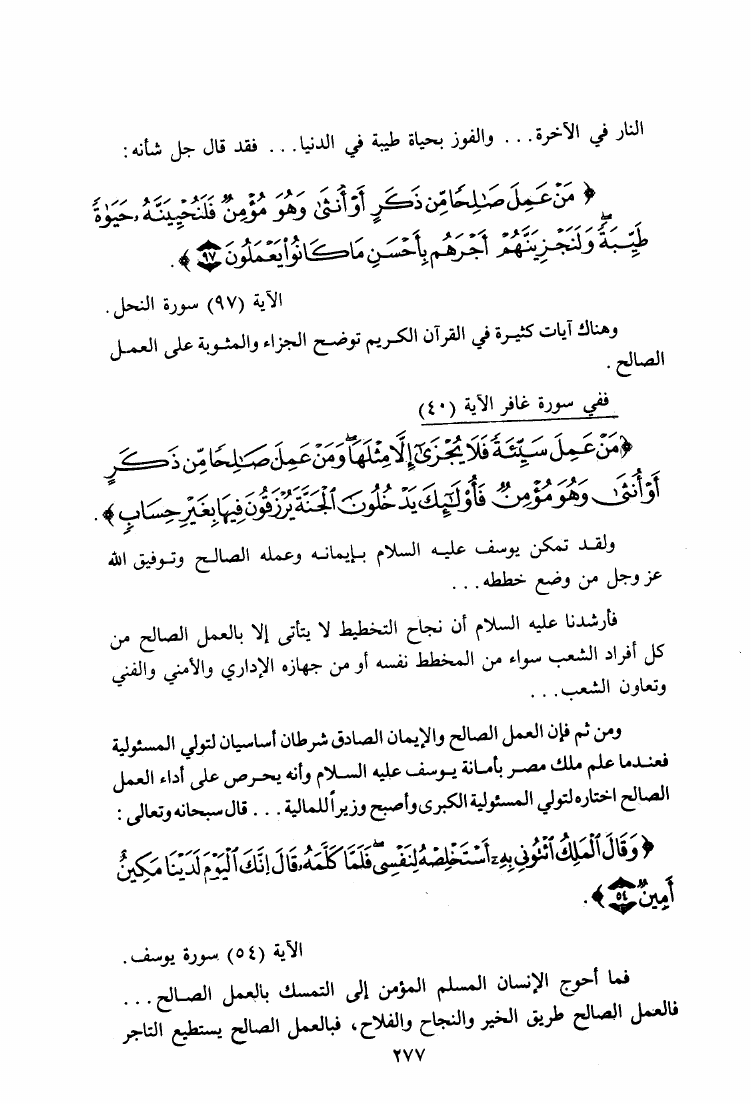 النار في الآخرة... والفوز بحياة طيبة في الدنيا... فقد قال جل شأنه:
﴿ مَنْ عَمِلَ صَٰلِحًا مِّن ذَكَرٍ أَوْ أُنثَىٰ وَهُوَ مُؤْمِنٌ فَلَنُحْيِيَنَّهُۥ حَيَوٰةً
طَيِّبَةً ۖ وَلَنَجْزِيَنَّهُمْ أَجْرَهُم بِأَحْسَنِ مَا كَانُوا۟ يَعْمَلُونَ ٩٧ ﴾.
الآية (٩٧) سورة النحل.
وهناك آيات كثيرة في القرآن الكريم توضح الجزاء والمثوبة على العمل
الصالح.
ففي سورة غافر الآية (٤٠)
﴿ مَنْ عَمِلَ سَيِّئَةً فَلَا يُجْزَىٰٓ إِلَّا مِثْلَهَا ۖ وَمَنْ عَمِلَ صَٰلِحًا مِّن ذَكَرٍ
أَوْ أُنثَىٰ وَهُوَ مُؤْمِنٌ فَأُو۟لَٰٓئِكَ يَدْخُلُونَ ٱلْجَنَّةَ يُرْزَقُونَ فِيهَا بِغَيْرِ حِسَابٍ ﴾.
ولقد تمكن يوسف عليه السلام بإيمانه وعمله الصالح وتوفيق الله
عز وجل من وضع خططه...
فأرشدنا عليه السلام أن نجاح التخطيط لا يتأتى إلا بالعمل الصالح من
كل أفراد الشعب سواء من المخطط نفسه أو من جهازه الإداري والأمني والفني
وتعاون الشعب...
ومن ثم فإن العمل الصالح والإيمان الصادق شرطان أساسيان لتولي المسئولية
فعندما علم ملك مصر بأمانة يوسف عليه السلام وأنه يحرص على أداء العمل
الصالح اختاره لتولي المسئولية الكبرى وأصبح وزيراً للمالية... قال سبحانه وتعالى:
﴿ وَقَالَ ٱلْمَلِكُ ٱئْتُونِي بِهِۦٓ أَسْتَخْلِصْهُ لِنَفْسِي ۖ فَلَمَّا كَلَّمَهُۥ قَالَ إِنَّكَ ٱلْيَوْمَ لَدَيْنَا مَكِينٌ
أَمِينٌ ٥٤ ﴾.
الآية (٥٤) سورة يوسف.
فما أحوج الإنسان المسلم المؤمن إلى التمسك بالعمل الصالح...
فالعمل الصالح طريق الخير والنجاح والفلاح، فبالعمل الصالح يستطيع التاجر
٢٧٧